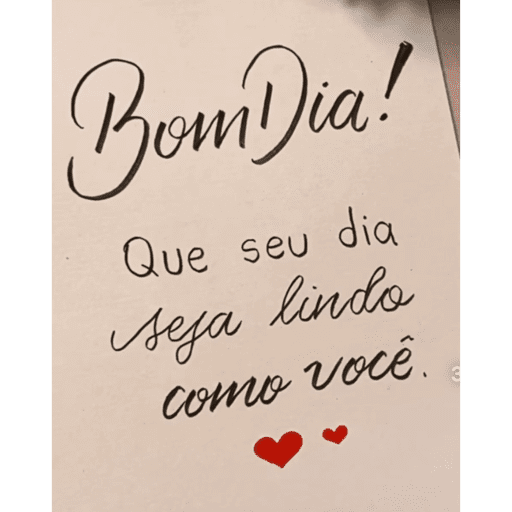 Bom Dia!
Que seu dia
seja lindo
como você.
3